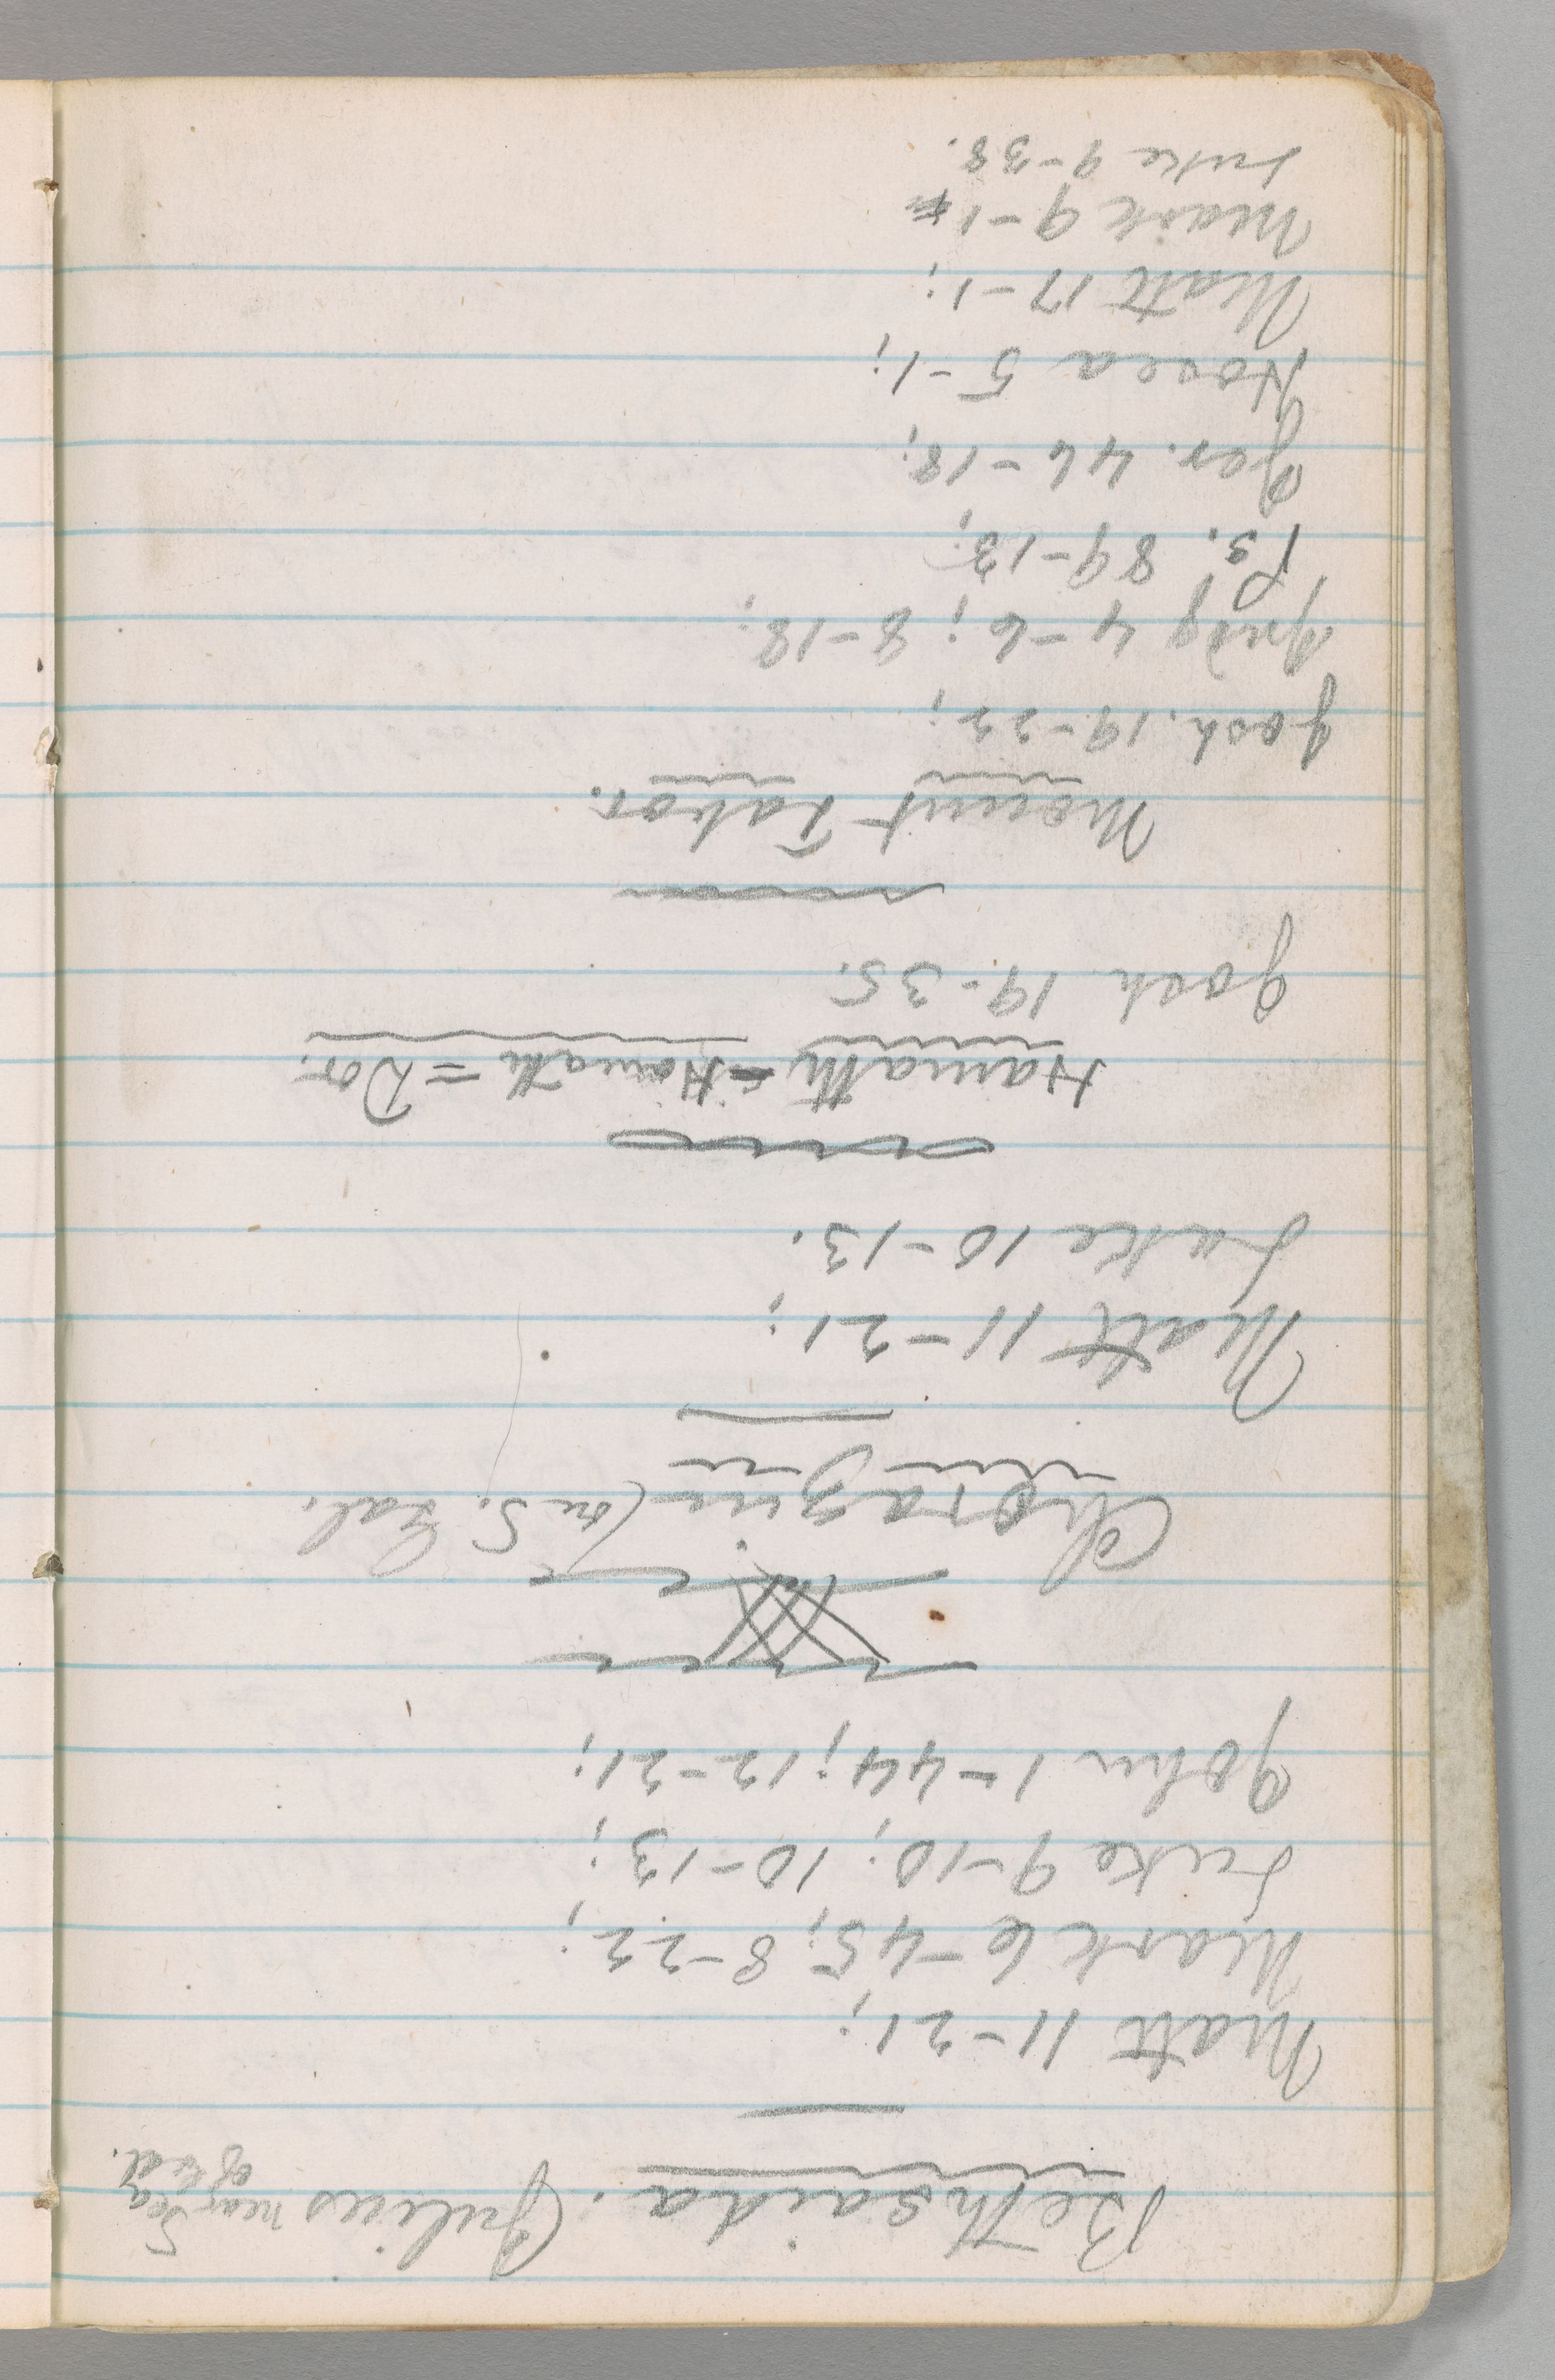 Bethsaida. (Julias near Sea
of Gal.
Matt 11-21;
Mark 6-45; 8-22;
Luke 9-10; 10-13;
John 1-44; 12-21;
Chorazin (on S. Gal.
Matt 11-21;
Luke 10-13.
Hamath - Hamath = Dor.
Josh 19-35.
Mount Tabor.
Josh. 19-22;
Judg 4-6; 8-18;
Ps. 89-12;
Jer. 46-18;
Hosea 5-1;
Matt 17-1;
Mark 9-1
Luke 9-38.